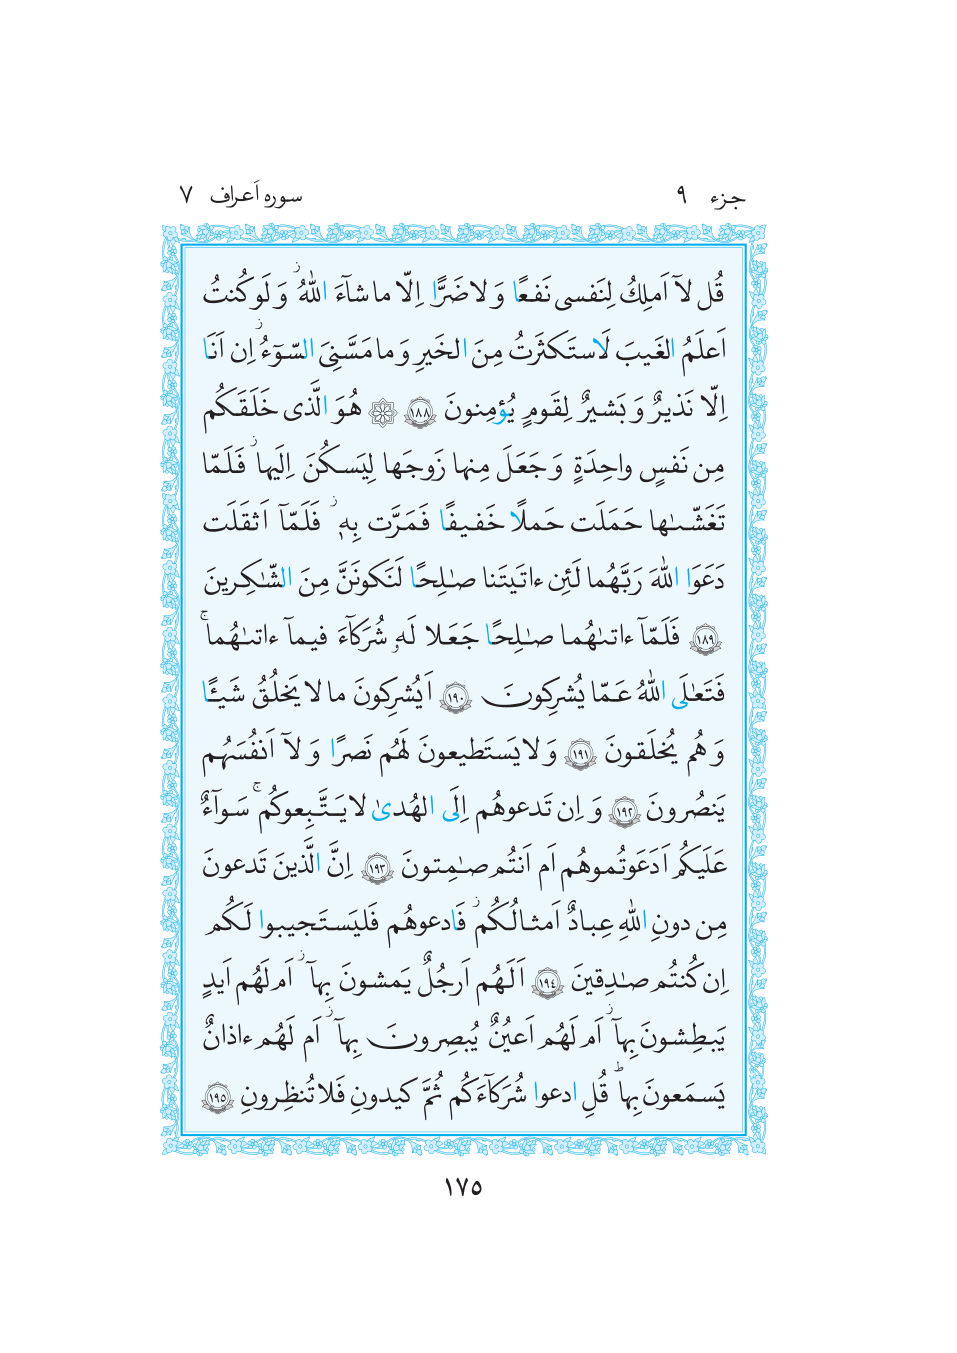 جزء ٩
سوره اَعراف ٧
قُل لآ اَملِكُ لِنَفسى نَفعًا وَ لا ضَرًّا اِلّا ما شآءَ اللّٰهُ ۚز وَ لَو كُنتُ
اَعلَمُ الغَيبَ لَاستَكثَرتُ مِنَ الخَيرِ وَ ما مَسَّنِىَ السّوٓءُ ز اِن اَنَا
اِلّا نَذيرٌ وَ بَشيرٌ لِقَومٍ يُؤمِنونَ ﴿١٨٨﴾ ۞ هُوَ الَّذى خَلَقَكُم
مِن نَفسٍ واحِدَةٍ وَ جَعَلَ مِنها زَوجَها لِيَسكُنَ اِلَيها ز فَلَمّا
تَغَشّـىٰها حَمَلَت حَملًا خَفيفًا فَمَرَّت بِهٖ ز فَلَمّآ اَثقَلَت
دَعَوَا اللّٰهَ رَبَّهُما لَئِن ءاتَيتَنا صـٰلِحًا لَنَكونَنَّ مِنَ الشّـٰكِرينَ
﴿١٨٩﴾ فَلَمّآ ءاتـىٰهُما صـٰلِحًا جَعَلا لَهٗ شُرَكآءَ فيمآ ءاتـىٰهُما ۚ
فَتَعـٰلَى اللّٰهُ عَمّا يُشرِكونَ ﴿١٩٠﴾ اَيُشرِكونَ ما لا يَخلُقُ شَيـًٔا
وَ هُم يُخلَقونَ ﴿١٩١﴾ وَ لا يَستَطيعونَ لَهُم نَصرًا وَ لآ اَنفُسَهُم
يَنصُرونَ ﴿١٩٢﴾ وَ اِن تَدعوهُم اِلَى الهُدىٰ لا يَتَّبِعوكُم ۚ سَوآءٌ
عَلَيكُم اَدَعَوتُموهُم اَم اَنتُم صـٰمِتونَ ﴿١٩٣﴾ اِنَّ الَّذينَ تَدعونَ
مِن دونِ اللّٰهِ عِبادٌ اَمثالُكُم ز فَادعوهُم فَليَستَجيبوا لَكُم
اِن كُنتُم صـٰدِقينَ ﴿١٩٤﴾ اَلَهُم اَرجُلٌ يَمشونَ بِهآ ز اَم لَهُم اَيدٍ
يَبطِشونَ بِهآ ز اَم لَهُم اَعيُنٌ يُبصِرونَ بِهآ ز اَم لَهُم ءاذانٌ
يَسمَعونَ بِها ؕ قُلِ ادعوا شُرَكآءَكُم ثُمَّ كيدونِ فَلا تُنظِرونِ ﴿١٩٥﴾
١٧٥